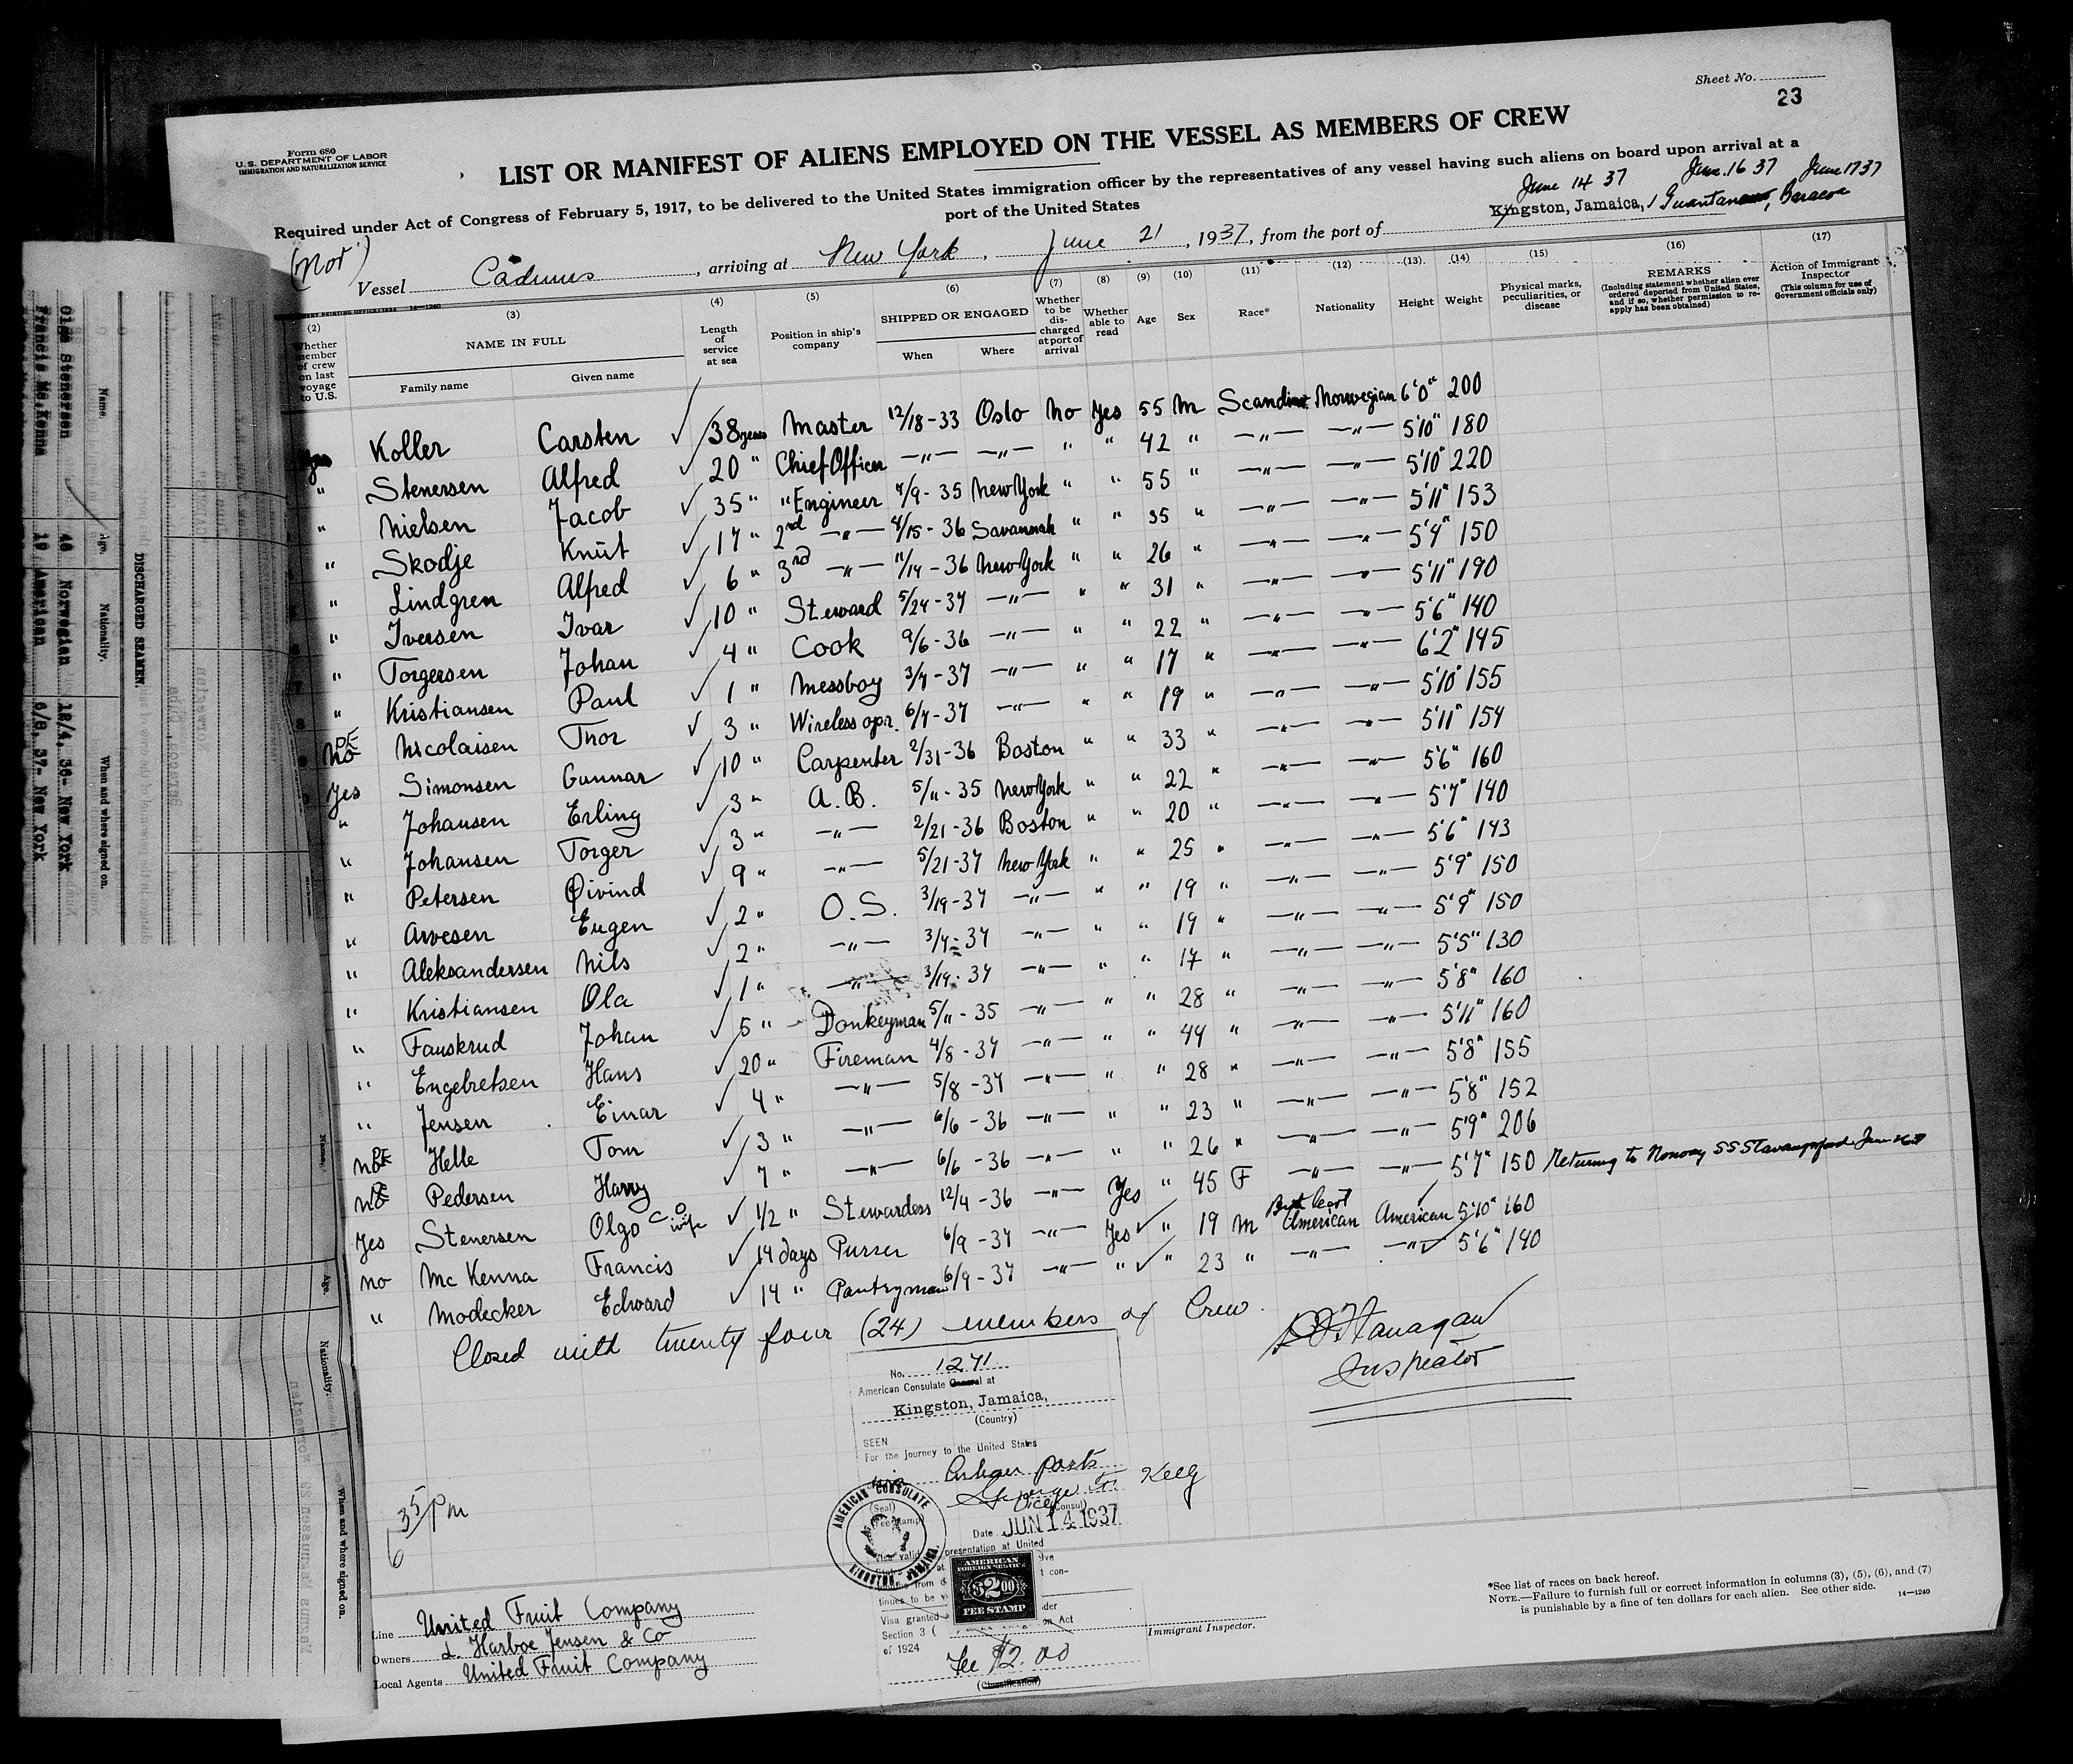 Sheet No.
23
Form 680
U.S. DEPARTMENT OF LABOR
IMMIGRATION AND NATURALIZATION SERVICE
LIST OR MANIFEST OF ALIENS EMPLOYED ON THE VESSEL AS MEMBERS OF CREW
Required under Act of Congress of February 5, 1917, to be delivered to the United States immigration officer by the representatives of any vessel having such aliens on board upon arrival at a
port of the United States
June 14 37 June 16 37 June 17 37
(Nor) Vessel Cadmus, arriving at New York, June 21, 1937, from the port of Kingston, Jamaica, Guantanamo, Baracoa
(2) Whether member of crew on last voyage to U.S.
(3) NAME IN FULL
Family name Given name
(4) Length of service at sea
(5) Position in ship's company
(6) SHIPPED OR ENGAGED
When Where
(7) Whether to be discharged at port of arrival
(8) Whether able to read
(9) Age
(10) Sex
(11) Race*
(12) Nationality
(13) Height
(14) Weight
(15) Physical marks, peculiarities, or disease
(16) REMARKS
(Including statement whether alien ever ordered deported from United States, and if so, whether permission to reapply has been obtained)
(17) Action of Immigrant Inspector
(This column for use of Government officials only)
Yes Koller Carsten 38 years Master 12/18-33 Oslo No Yes 55 M Scandinav Norwegian 6'0" 200
" Stenersen Alfred 20 " Chief Officer —"— —"— " " 42 " —"— —"— 5'10" 180
" Nielsen Jacob 35 " " Engineer 4/9-35 New York " " 55 " —"— —"— 5'10" 220
" Skodje Knut 17 " 2nd —"— 4/15-36 Savannah " " 35 " —"— —"— 5'11" 153
" Lindgren Alfred 6 " 3rd —"— 11/14-36 New York " " 26 " —"— —"— 5'4" 150
" Iversen Ivar 10 " Steward 5/24-37 —"— " " 31 " —"— —"— 5'11" 190
" Torgersen Johan 4 " Cook 9/6-36 —"— " " 22 " —"— —"— 5'6" 140
" Kristiansen Paul 1 " Messboy 3/4-37 —"— " " 17 " —"— —"— 6'2" 145
No Nicolaisen Thor 3 " Wireless opr. 6/7-37 —"— " " 19 " —"— —"— 5'10" 155
Yes Simonsen Gunnar 10 " Carpenter 2/31-36 Boston " " 33 " —"— —"— 5'11" 154
" Johansen Erling 3 " A.B. 5/11-35 New York " " 22 " —"— —"— 5'6" 160
" Johansen Torger 3 " —"— 2/21-36 Boston " " 20 " —"— —"— 5'7" 140
" Petersen Øivind 9 " —"— 5/21-37 New York " " 25 " —"— —"— 5'6" 143
" Arvesen Eugen 2 " O.S. 3/19-37 —"— " " 19 " —"— —"— 5'9" 150
" Aleksandersen Nils 2 " —"— 3/4-37 —"— " " 19 " —"— —"— 5'9" 150
" Kristiansen Ola 1 " —"— 3/19-37 —"— " " 17 " —"— —"— 5'5" 130
" Fauskrud Johan 5 " Donkeyman 5/11-35 —"— " " 28 " —"— —"— 5'8" 160
" Engebretsen Hans 20 " Fireman 4/8-37 —"— " " 44 " —"— —"— 5'11" 160
" Jensen Einar 4 " —"— 5/8-37 —"— " " 28 " —"— —"— 5'8" 155
No Helle Tom 3 " —"— 6/6-36 —"— " " 23 " —"— —"— 5'8" 152
No Pedersen Harry 7 " —"— 6/6-36 —"— " 26 " —"— —"— 5'9" 206
Yes Stenersen Olgo c/o wife 1/2 " Stewardess 12/4-36 —"— Yes " 45 F —"— —"— 5'7" 150 Returning to Norway SS Stavangerfjord June 26 37
No Mc Kenna Francis 14 days Purser 6/9-37 —"— Yes " 19 M American American 5'10" 160
" Modecker Edward 14 " Pantryman 6/9-37 —"— " " 23 " —"— —"— 5'6" 140
Closed with twenty four (24) members of Crew.
Flanagan
Inspector
No. 1241
American Consulate General at
Kingston, Jamaica,
(Country)
SEEN
For the journey to the United States
via Cuban ports
George F. Kelly
Vice Consul
(Seal)
(Fee stamp)
Date JUN 14 1937
AMERICAN CONSULATE
KINGSTON, JAMAICA.
presentation at United
AMERICAN
FOREIGN SERVICE
$2.00
FEE STAMP
Visa granted
Section 3 (
of 1924
Fee $2.00
(Classification)
6 35/PM
Line United Fruit Company
Owners L. Harboe Jensen & Co
Local Agents United Fruit Company
Immigrant Inspector.
*See list of races on back hereof.
NOTE.—Failure to furnish full or correct information in columns (3), (5), (6), and (7)
is punishable by a fine of ten dollars for each alien. See other side.
14—1240
DISCHARGED SEAMEN.
Name. Age. Nationality. When and where signed on.
Olga Stenersen 46 Norwegian 12/4, 36- New York
Francis Mc.Kenna 19 American 6/9, 37- New York
Name. Age. Nationality. When and where signed on.